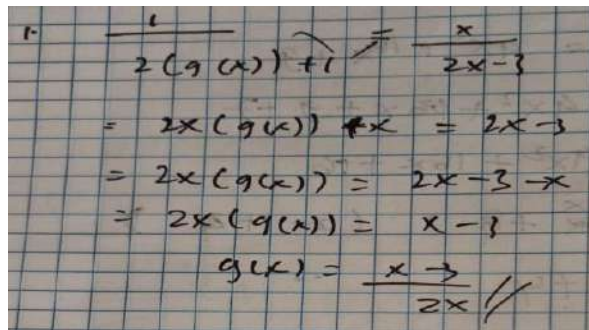 1. 1 / 2(g(x)) + 1 = x / 2x - 3
= 2x(g(x)) + x = 2x - 3
= 2x(g(x)) = 2x - 3 - x
= 2x(g(x)) = x - 3
g(x) = x - 3 / 2x //